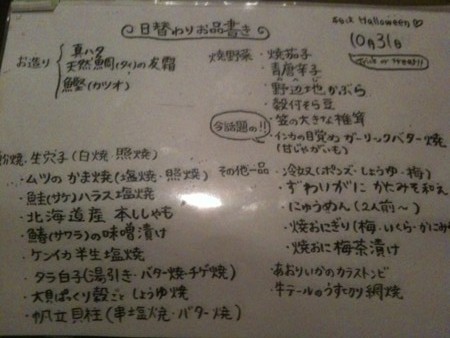 日替わりお品書き
Halloween♡
10月31日
Trick or treat!!
お造り
真ハタ
天然鯛(タイ)の友霜
鰹(カツオ)
焼野菜
・焼茄子
・青唐辛子
・野辺地かぶら
・殻付そら豆
・笠の大きな椎茸
今話題の!!
・インカの目覚め ガーリックバター焼
(甘じゃがいも)
焼・生穴子(白焼・照焼)
・ムツのかま焼(塩焼・照焼)
・鮭(サケ)ハラス塩焼
・北海道産 本ししゃも
・鰆(サワラ)の味噌漬け
・ケンイカ半生塩焼
・タラ白子(湯引き・バター焼・チゲ焼)
・大貝ぱっくり殻ごとしょうゆ焼
・帆立貝柱(串塩焼・バター焼)
その他一品
・冷奴(ポンズ・しょうゆ・梅)
・ずわいがに かにみそ和え
・にゅうめん(2人前〜)
・焼おにぎり(梅・いくら・かにみそ
・焼おに梅茶漬け
・あおりいかのカラストンビ
・牛テールのうすヒクリ網焼